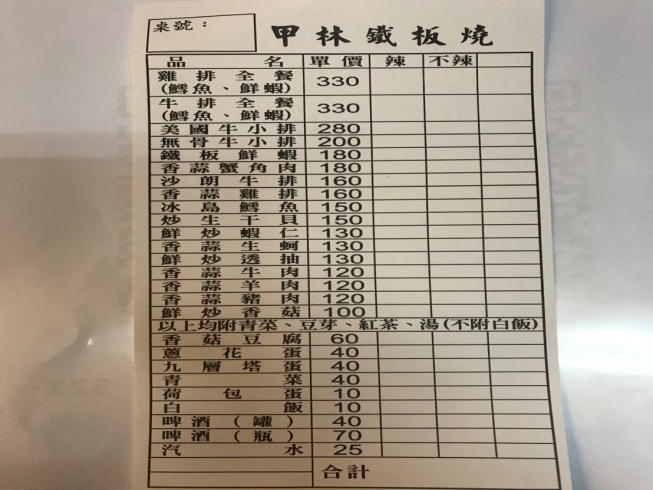 桌號：
甲林鐵板燒
品名 單價 辣 不辣
雞排全餐 330
(鱈魚、鮮蝦)
牛排全餐 330
(鱈魚、鮮蝦)
美國牛小排 280
無骨牛小排 200
鐵板鮮蝦 180
香蒜蟹角肉 180
沙朗牛排 160
香蒜雞排 160
冰島鱈魚 150
炒生干貝 150
鮮炒蝦仁 130
香蒜生蚵 130
鮮炒透抽 130
香蒜牛肉 120
香蒜羊肉 120
香蒜豬肉 120
鮮炒香菇 100
以上均附青菜、豆芽、紅茶、湯(不附白飯)
香菇豆腐 60
蔥花蛋 40
九層塔蛋 40
青菜 40
荷包蛋 10
白飯 10
啤酒(罐) 40
啤酒(瓶) 70
汽水 25
合計